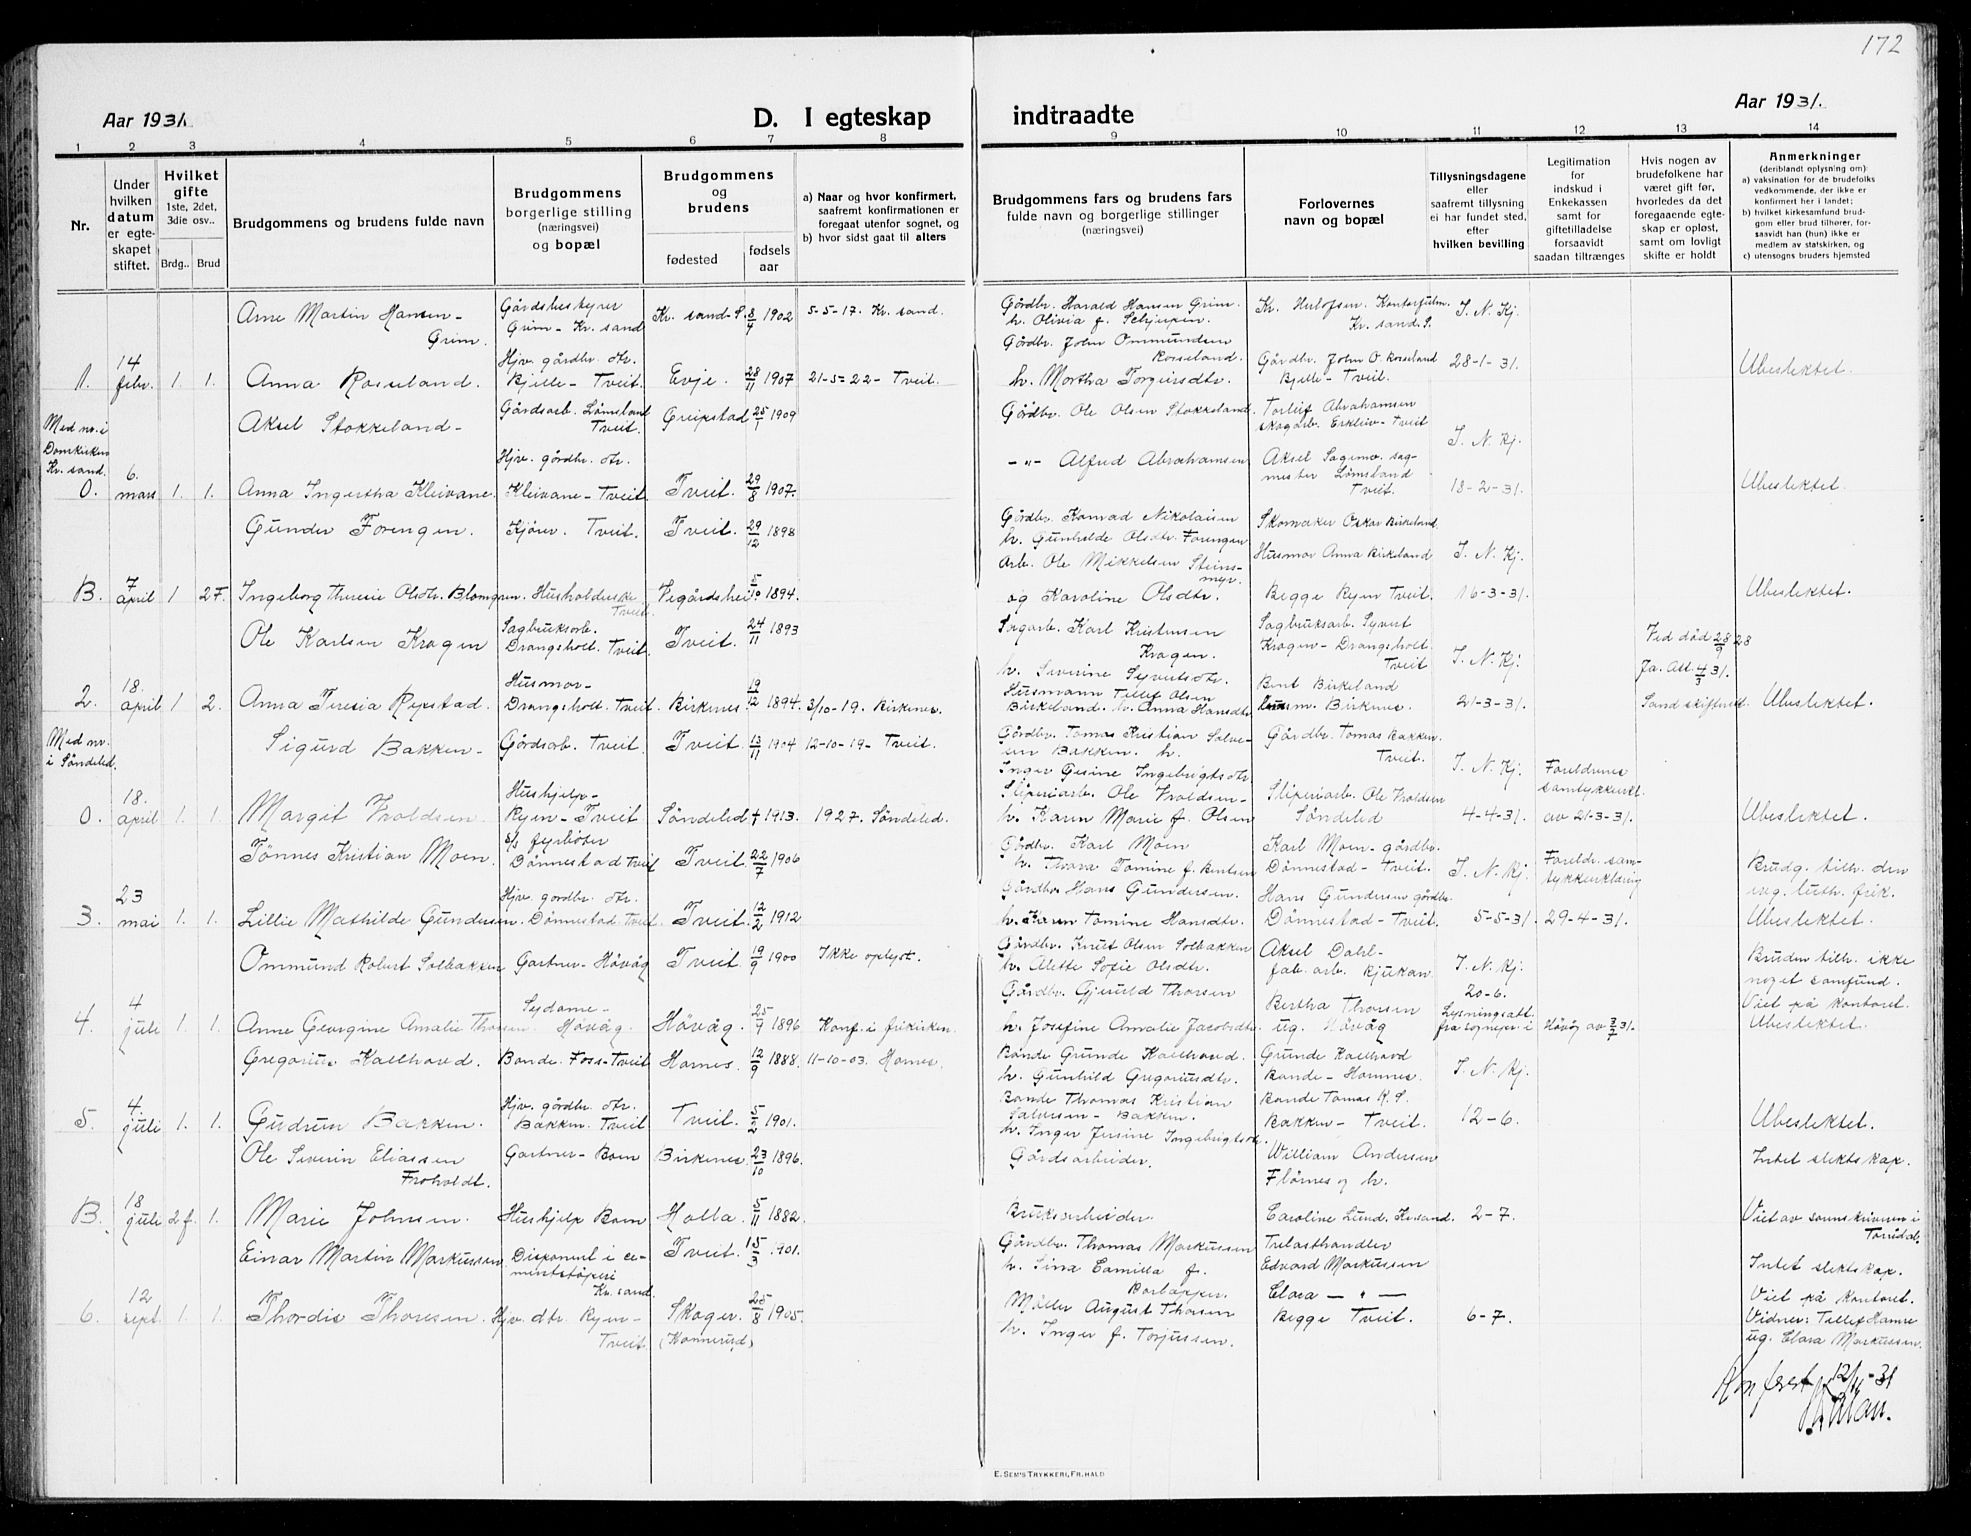 172
Aar 1931.
D. I egteskap indtraadte
Aar 1931.
1 2 3 4 5 6 7 8 9 10 11 12 13 14
Nr.
Under hvilken datum er egteskapet stiftet.
Hvilket gifte
1ste, 2det, 3die osv..
Brdg.. Brud
Brudgommens og brudens fulde navn
Brudgommens borgerlige stilling (næringsvei) og bopæl
Brudgommens og brudens
fødested
fødsels aar
a) Naar og hvor konfirmert, saafremt konfirmationen er foregaat utenfor sognet, og
b) hvor sidst gaat til alters
Brudgommens fars og brudens fars fulde navn og borgerlige stillinger (næringsvei)
Forlovernes navn og bopæl
Tillysningsdagene eller saafremt tillysning ei har fundet sted, efter hvilken bevilling
Legitimation for indskud i Enkekassen samt for giftetilladelse forsaavidt saadan tiltrænges
Hvis nogen av brudefolkene har været gift før, hvorledes da det foregaaende egteskap er opløst, samt om lovlig skifte er holdt
Anmerkninger
(deriblandt oplysning om:
a) vaksination for de brudefolks vedkommende, der ikke er konfirmert her i landet;
b) hvilket kirkesamfund brudgom eller brud tilhører, forsaavidt han (hun) ikke er medlem av statskirken, og
c) utensogns bruders hjemsted
Arne Martin Hansen - Grim. Gårdsbestyrer Grim - Kr. sand Kr. sand S. 8/4 1902 5-5-17. Kr. sand. Gårdbr. Harald Hansen Grim. h. Olivia f. Kr. Kontorfullm. Kr. sand S. I. N. Kj.
1. 14 febr. 1. 1. Anna Rosseland. Hjv. gårdbr. dtr. Kjelle - Tveit. Evje. 28/11 1907 21-5-22 - Tveit. Gårdbr. John Ommundsen Rosseland. h. Martha Torgiusdtr. Gårdbr. John O. Rosseland Kjelle - Tveit. 28-1-31. Ubeslektet.
Med nr. i Domkirken Kr. sand.
Aksel Stokkeland - Gårdsarb. Lømsland Tveit. Greipstad 25/1 1909 Gårdbr. Ole Olsen Stokkeland. Torleif Abrahamsen skogarb. Erkleiv - Tveit I. N. Kj.
0. 6. mars 1. 1. Anna Ingertha Kleivane. Hjv. gårdbr. dtr. Kleivane - Tveit. Tveit. 29/8 1907. -"- Alfred Abrahamsen Aksel Sagemo. sagmester Lømsland Tveit. 18-2-31. Ubeslektet.
Gunder Forengen. Kjører. Tveit. Tveit. 29/12 1898 Gårdbr. Konrad Nikolaisen h. Gunhilde Olsdtr. Forengen Skomaker Oskar Birkeland Husmor Anna Birkeland I. N. Kj.
B. 7 april 1 2 F. Ingeborg Theresie Olsdtr. Blomgren. Husholderske Tveit. Vegårdshei 5/10 1894. Arb. Ole Mikkelsen Steinsmyr. og Karoline Olsdtr. Begge Ryen Tveit. 16-3-31. Ubeslektet.
Ole Karlsen Kragen Sagbruksarb. Drangsholt. Tveit. Tveit. 24/11 1893 Sagarb. Karl Kristensen Kragen. h. Severine Syvertsdtr. Sagbruksarb. Syvert Kragen - Drangsholt. Tveit I. N. Kj. Ved død 28/9 28 Ja. Att. 4/3 31.
2. 18. april 1 2. Anna Teresia Repstad. Husmor - Drangsholt. Tveit. Birkenes 19/12 1894. 3/10-19. Birkenes. Husmann Tellef Olsen Birkeland. h. Anna Hansdtr. Bent Birkeland Birkenes. 21-3-31. Ubeslektet.
Med nr. i Søndeled.
Sigurd Bakken - Gårdsarb. Tveit. Tveit 13/11 1904 12-10-19 - Tveit. Gårdbr. Tomas Kristian Salvesen Bakken. h. Inger Gesine Ingebrigtsdtr. Gårdbr. Tomas Bakken. Tveit. I. N. Kj. Foreldrenes samtykkeerkl.
0. 18. april 1. 1. Margit Voldsen. Hushjelp - Ryen - Tveit Søndeled 1913. 1927. Søndeled. Sliperiarb. Ole Voldsen - h. Karen Marie f. Olsen Sliperiarb. Ole Voldsen Søndeled 4-4-31. av 21-3-31. Ubeslektet.
Tønnes Kristian Moen. s/s fyrbøter Dønnestad Tveit Tveit. 22/7 1906 Gårdbr. Karl Moen h. Thora Tomine f. Bentsen Karl Moen - gårdbr. Dønnestad - Tveit. I. N. Kj. Foreldr. samtykkerklæring Brudg. tilh. den evg. luth. frik.
3. 23 mai 1. 1. Lillie Mathilde Gundersen. Hjv. gårdbr. dtr. Dønnestad Tveit. Tveit. 12/2 1912 Gårdbr. Hans Gundersen. h. Karen Tomine Hansdtr. Hans Gundersen gårdbr. Dønnestad - Tveit. 5-5-31. 29-4-31. Ubeslektet.
Ommund Robert Solbakken Gartner - Høvåg Tveit. 19/9 1900 Ikke oplyst. Gårdbr. Knut Olsen Solbakken h. Alette Sofie Olsdtr. Aksel Dahl - fab. arb. Rjukan I. N. Kj. Bruden tilh. ikke noget samfund.
4. 4 juli 1. 1. Anne Georgine Amalie Thorsen Sydame - Høvåg. Høvåg 25/9 1896 Konf. i frikirken. Gårdbr. Gjeruld Thorsen h. Josefine Amalie Jacobsdtr. Bertha Thorsen ug. Høvåg 20-6. Lysningsatt. fra sognepr. i Høvåg av 2/7 31. Viet på kontoret. Ubeslektet
Gregorius Kallhovd. Bonde. Foss - Tveit Hornes. 12/9 1888. 11-10-03. Hornes. Bonde Grunde Kallhovd. h. Gunhild Gregoriusdtr. Grunde Kallhovd Bonde - Hornnes. I. N. Kj.
5. 4. juli 1. 1. Gudrun Bakken. Hjv. gårdbr. dtr. Bakken. Tveit Tveit. 5/2 1901. Bonde Thomas Kristian Salvesen - Bakken. h. Inger Jesine Ingebrigtsdtr. Bonde Tomas K. S. Bakken - Tveit. 12-6. Ubeslektet.
Ole Severin Eliassen Froholdt. Gartner - Bom Birkenes 23/10 1896. Gårdsarbeider. William Andersen Flørnes og h. Intet slektskap.
B. 18 juli 2 f. 1. Marie Johnsen. Hushjelp Bom Holla. 5/11 1882. Bruksarbeider Caroline Lund. Kr. sand. 2-7. Viet av sorenskriveren i Torridal.
Einar Martin Markussen Disponent i cementstøperi Kr. sand. Tveit. 15/3 1901. Gårdbr. Thomas Markussen h. Sina Camilla f. Trelasthandler Edvard Markussen Intet slektskap.
6. 12 sept. 1. 1. Thordis Thorsen. Hjv. dtr. Ryen - Tveit. Skoger. (Konnerud) 25/8 1905. Møller August Thorsen h. Inger f. Torjussen. Clara - " - Begge Tveit. 6-7. Viet på kontoret. Vidner: Tellef Hamre ug. Clara Markussen.
Konferert 12/11-31
E. SEM'S TRYKKERI, FR.HALD